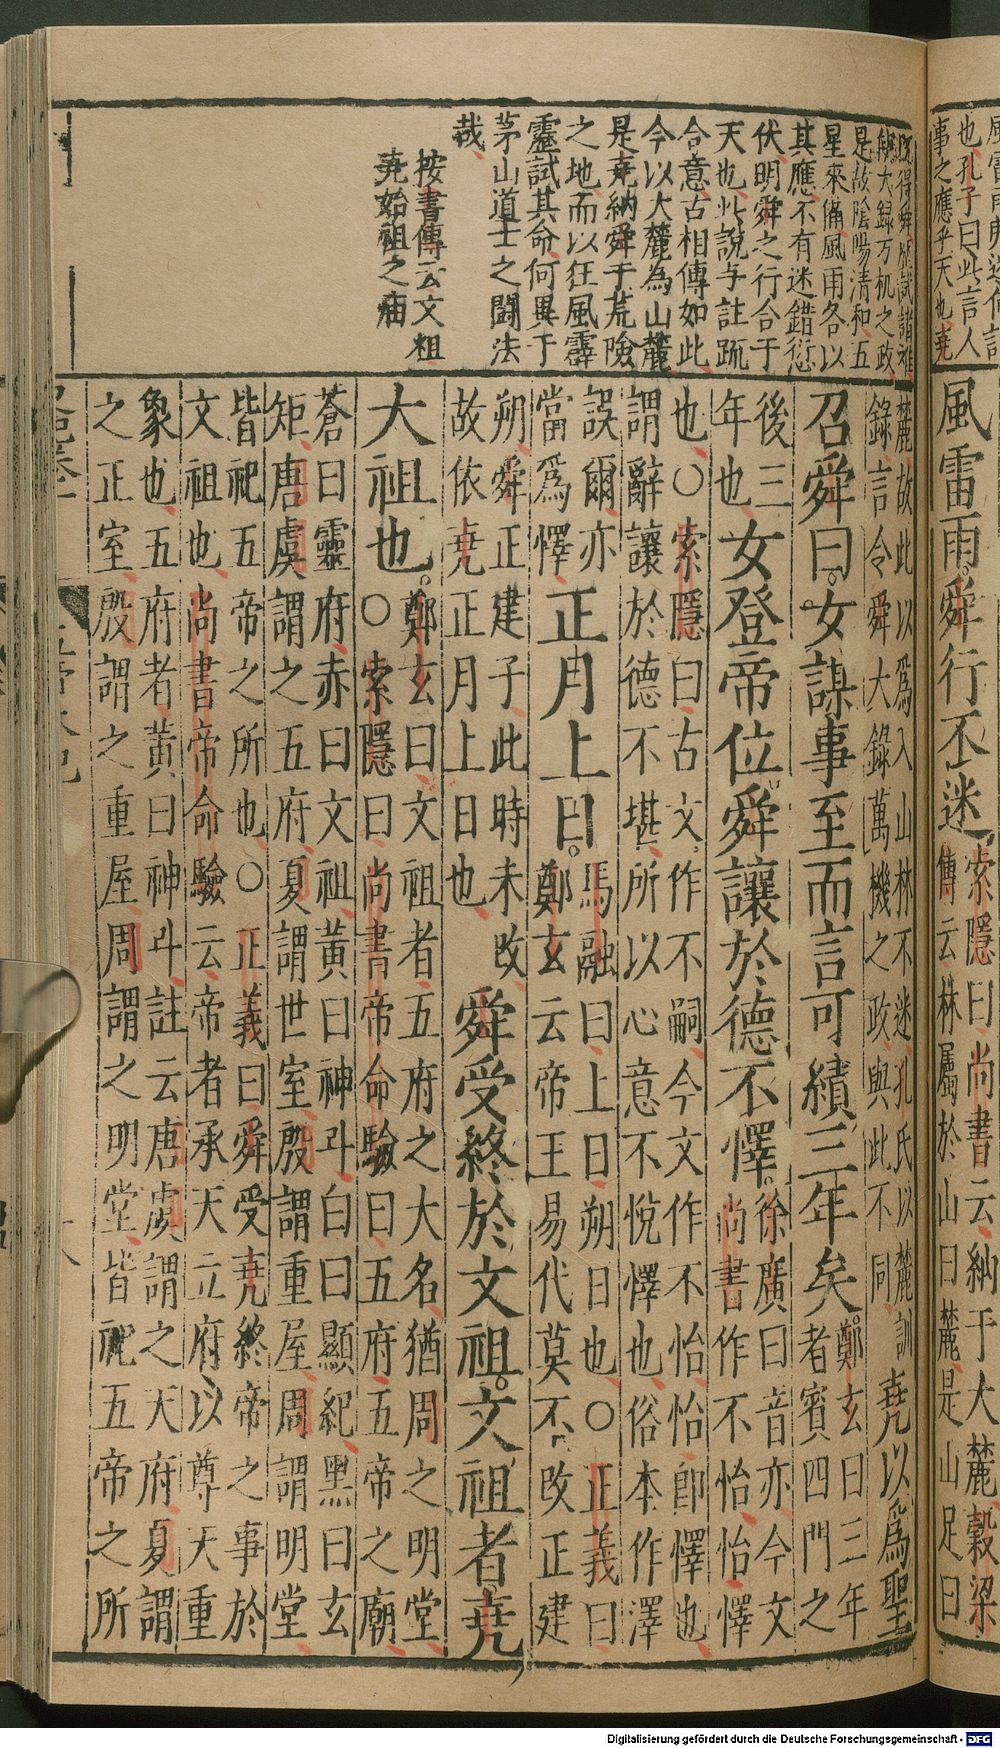 也孔子曰此言人
事之應乎天也堯
風雷雨舜行不迷
索隱曰尚書云納于大麓穀梁
傳云林屬於山曰麓是山足曰
得舜歷試諸難
大録万机之政
是故陰陽清和五
星來備風雨各以
其應不有迷錯愆
伏明舜之行合于
天也此說与註疏
合意古相傳如此
今以大麓為山麓
是堯納舜于荒險
之地而以狂風霹
靂試其命何異于
茅山道士之闘法
哉
按書傳云文祖
堯始祖之庙
麓故此以爲入山林不迷孔氏以麓訓
錄言令舜大錄萬機之政與此不同
堯以爲聖
召舜曰女謀事至而言可績三年矣
鄭玄曰三年
者賓四門之
後三
年也
女登帝位舜讓於德不懌
徐廣曰音亦今文
尚書作不怡怡懌
也○索隱曰古文作不嗣今文作不怡怡即懌也
謂辭讓於德不堪所以心意不悅懌也俗本作澤
誤爾亦
當爲懌
正月上日
馬融曰上日朔日也○正義曰
鄭玄云帝王易代莫不改正建
朔舜正建子此時未改
故依堯正月上日也
舜受終於文祖文祖者堯
大祖也
鄭玄曰文祖者五府之大名猶周之明堂
○索隱曰尚書帝命驗曰五府五帝之廟
蒼曰靈府赤曰文祖黃曰神斗白曰顯紀黑曰玄
矩唐虞謂之五府夏謂世室殷謂重屋周謂明堂
皆祀五帝之所也○正義曰舜受堯終帝之事於
文祖也尚書帝命驗云帝者承天立府以尊天重
象也五府者黃曰神斗註云唐虞謂之天府夏謂
之正室殷謂之重屋周謂之明堂皆祀五帝之所
Digitalisierung gefördert durch die Deutsche Forschungsgemeinschaft - DFG